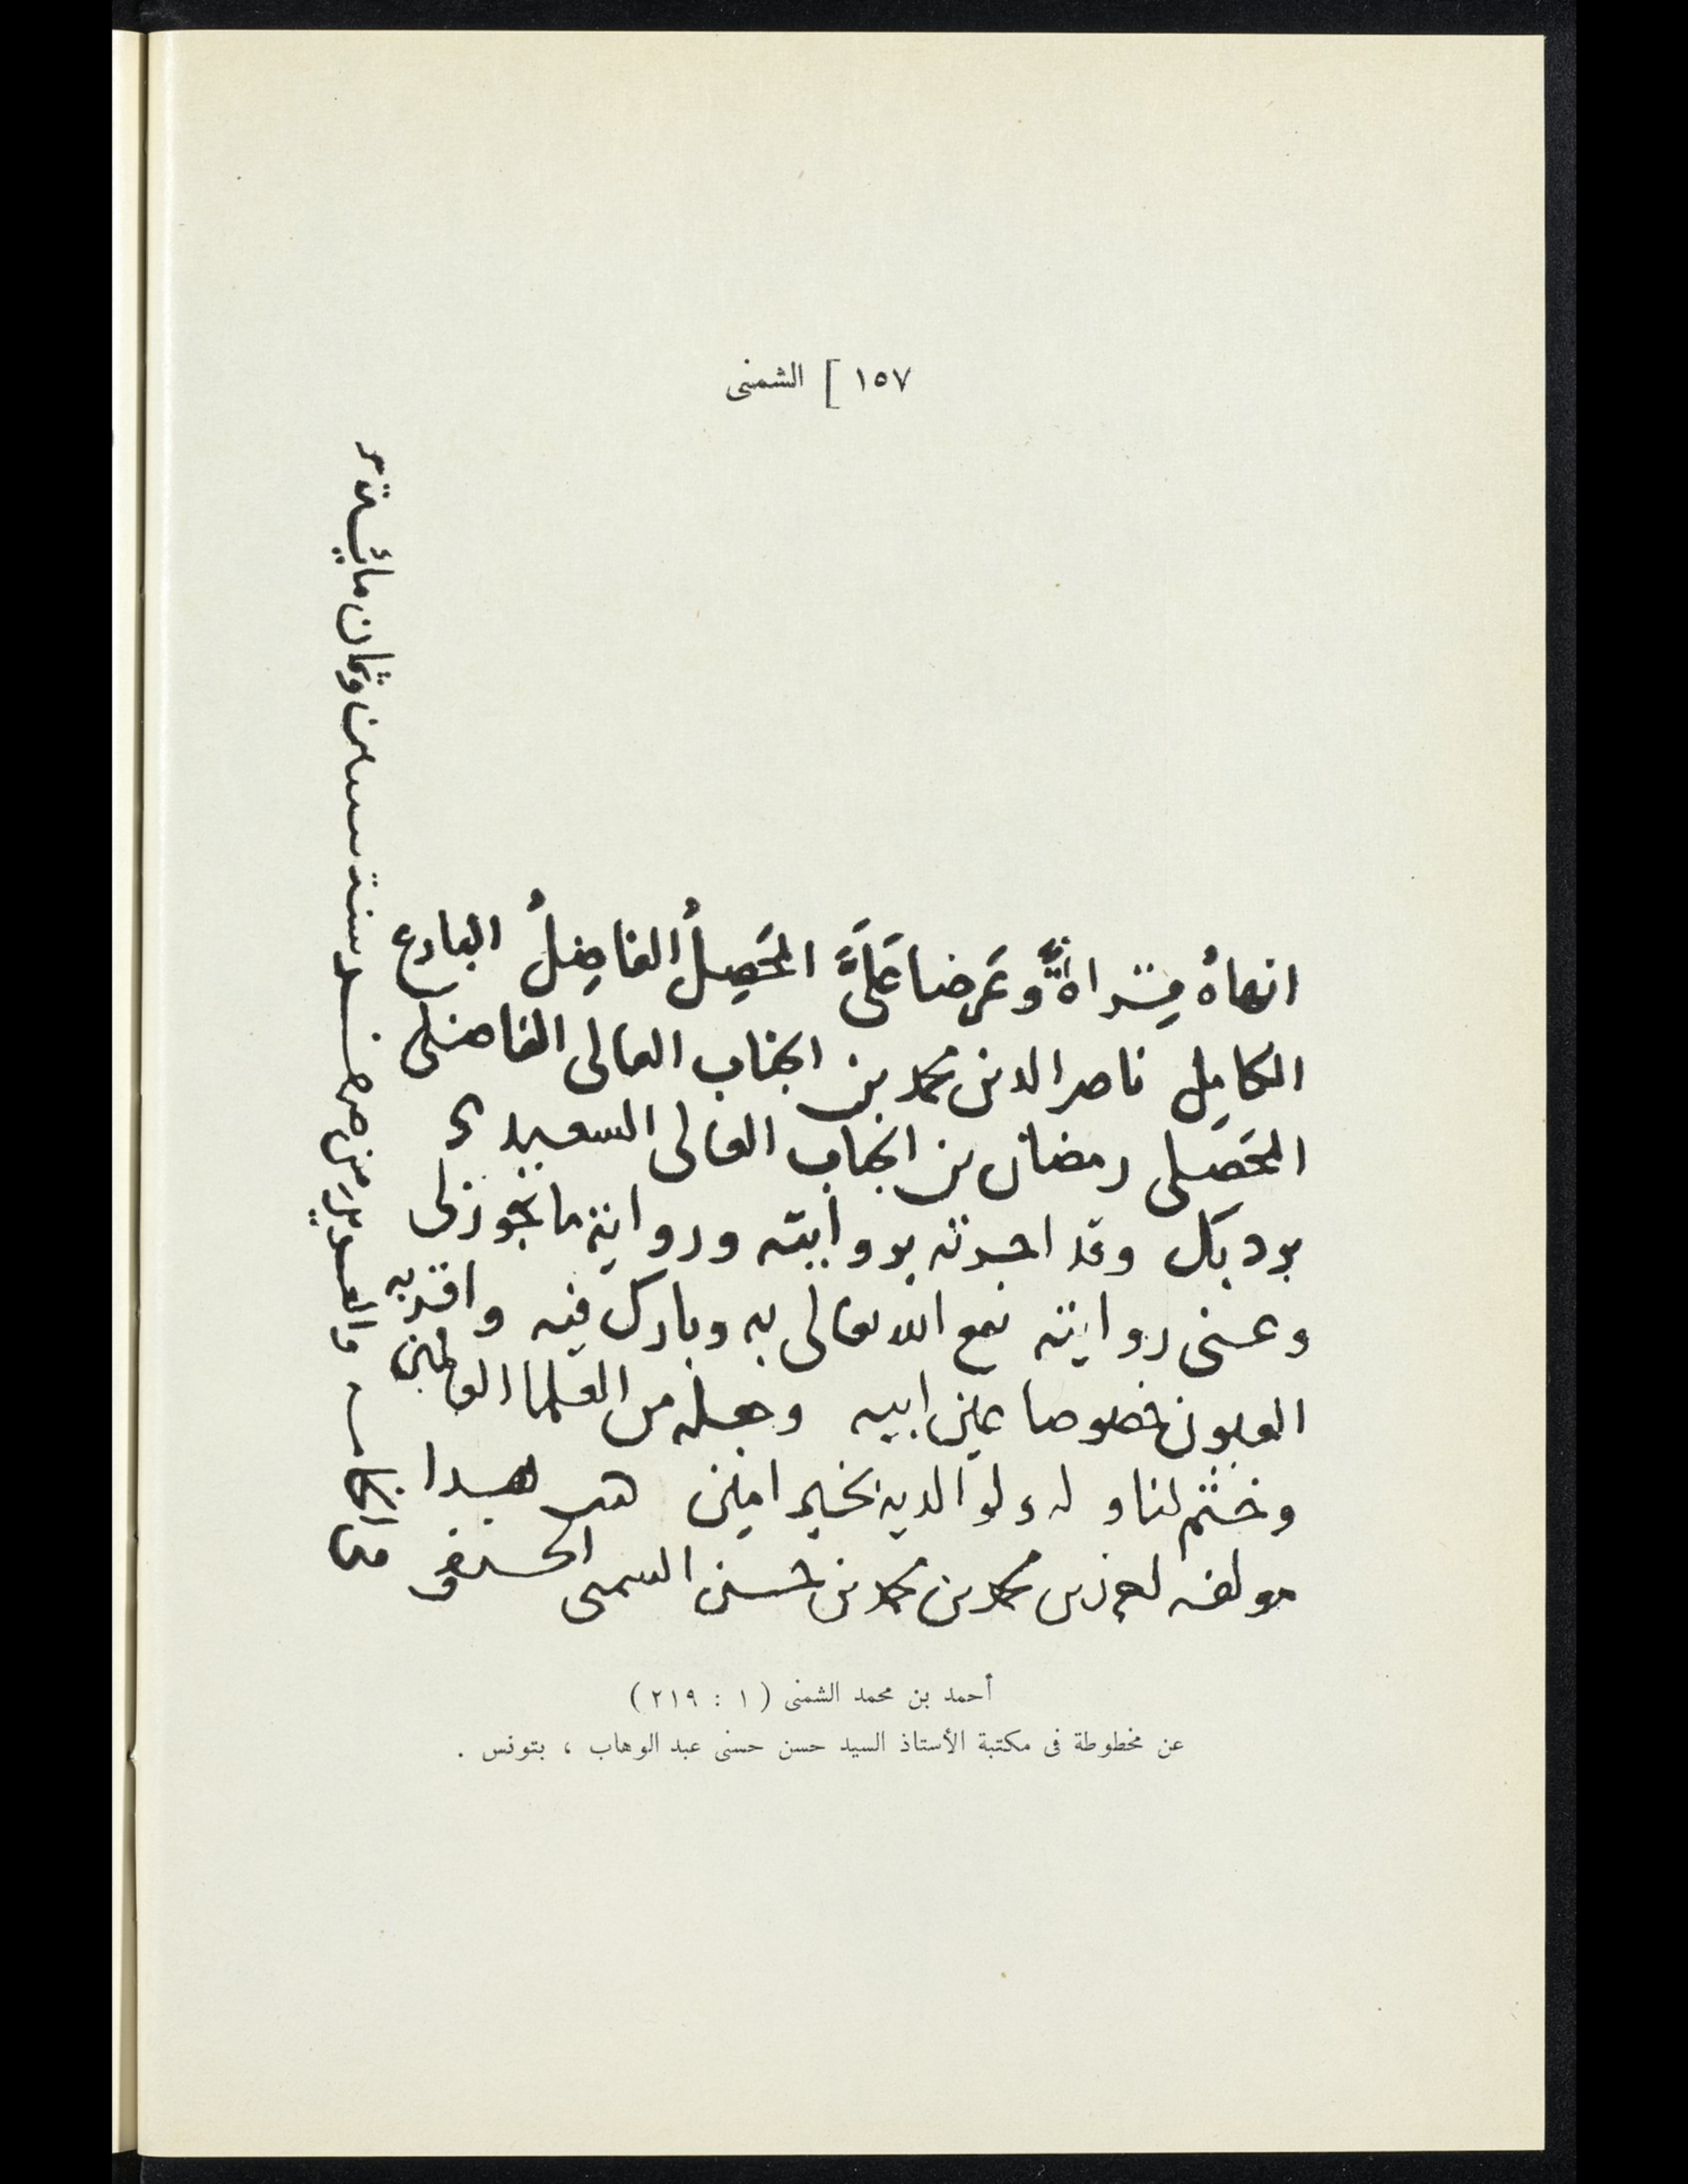 ١٥٧ ] الشمنى
انهاهُ قراةً وعَرضا عَلَىَّ المحَصِلُ الفاضِلُ البارع
الكامِل ناصر الدين محمد بن الجناب العالى الفاضلى
المحَصلى رمضان بن الجناب العالى السعيدى
بردبك وقد اجزته بروايته ورواية ما تجوز لى
وعنى روايته نفع الله تعالى به وبارك فيه واقر به
العيون خصوصا عين ابيه وجعله من العلما العاملين
وختم لنا وله ولوالديه بخير امين كتب هذا
مولفه احمد بن محمد بن محمد بن حسن الشمنى الحنفى
فى الخامس والعشرين من صفر سنة ستين وثمان مائة
أحمد بن محمد الشمنى ( ١ : ٢١٩ )
عن مخطوطة فى مكتبة الأستاذ السيد حسن حسنى عبد الوهاب ، بتونس .